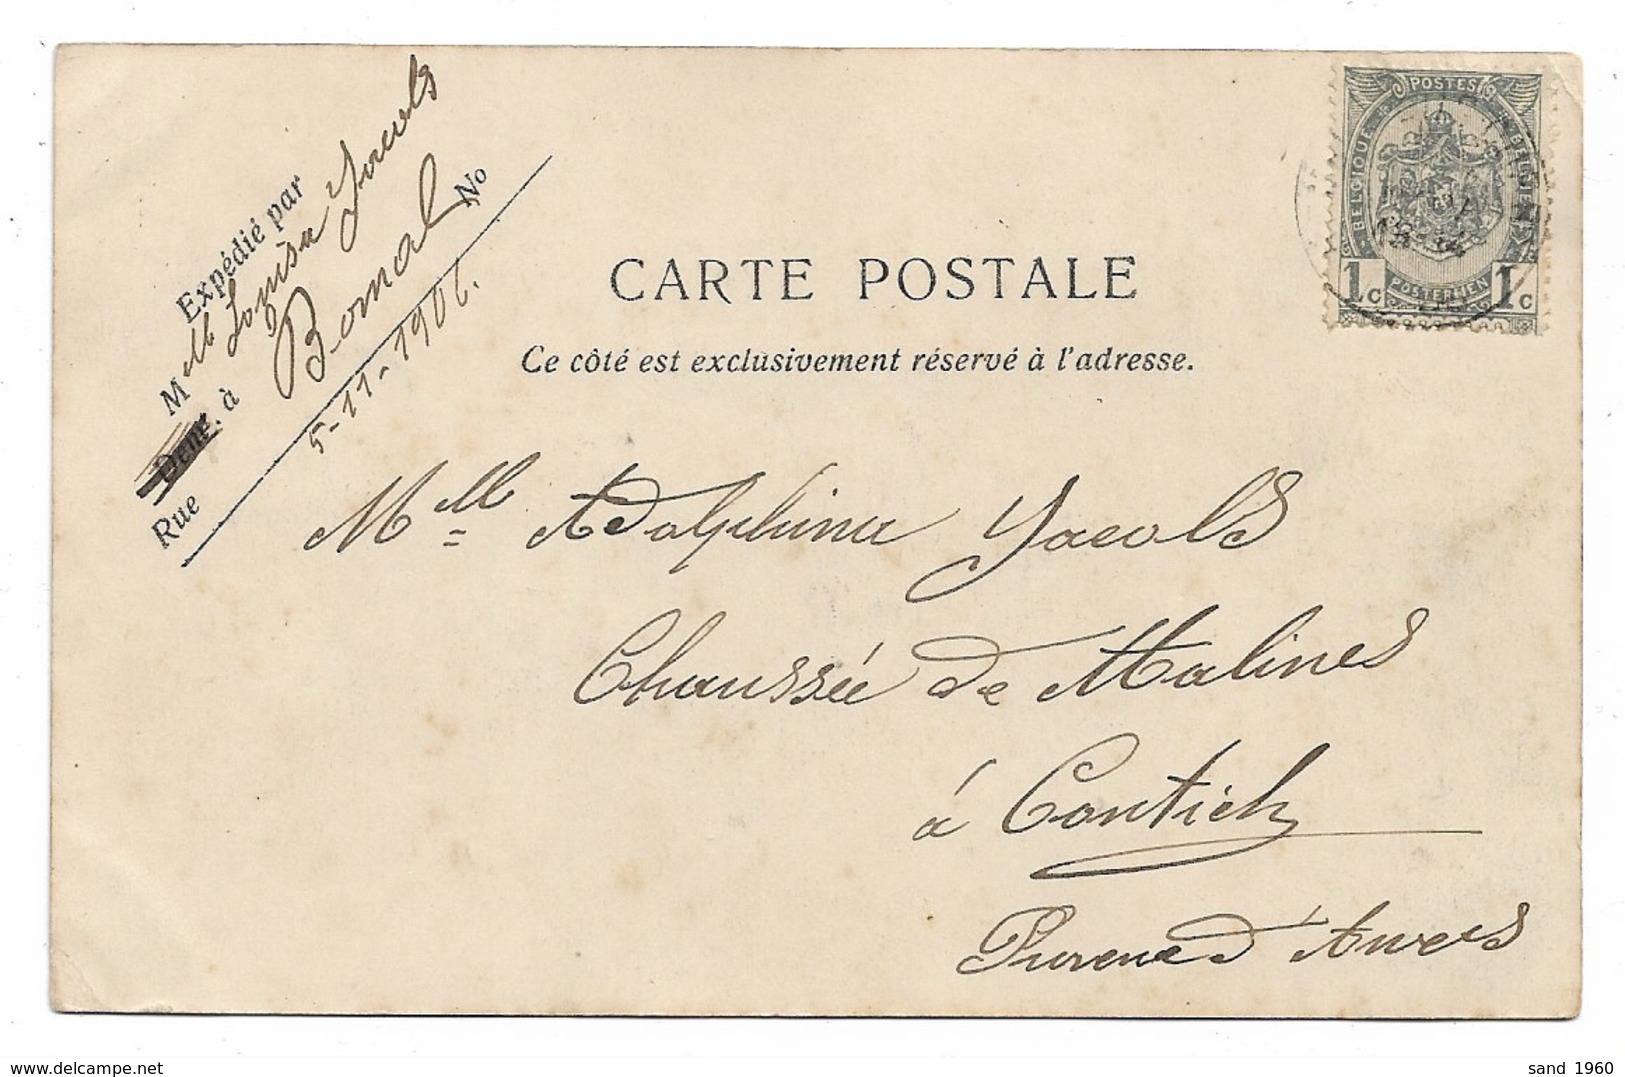 Expédié par
Melle Louisa Jacobs
Dem. à Bomal
Rue No
5-11-1906.
POSTES
BELGIQUE
1c
POSTERIJEN
1c
CARTE POSTALE
Ce côté est exclusivement réservé à l'adresse.
Mlle Adolphina Jacobs
Chaussée de Malines
à Contich
Provence d'Anvers
sand 1960